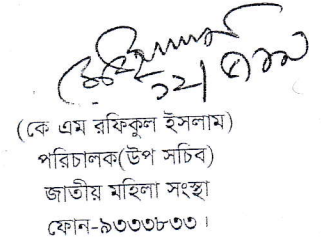 (কে এম রফিকুল ইসলাম)
পরিচালক(উপ সচিব)
জাতীয় মহিলা সংস্থা
ফোন-৯৩৩৩৮৩৩।